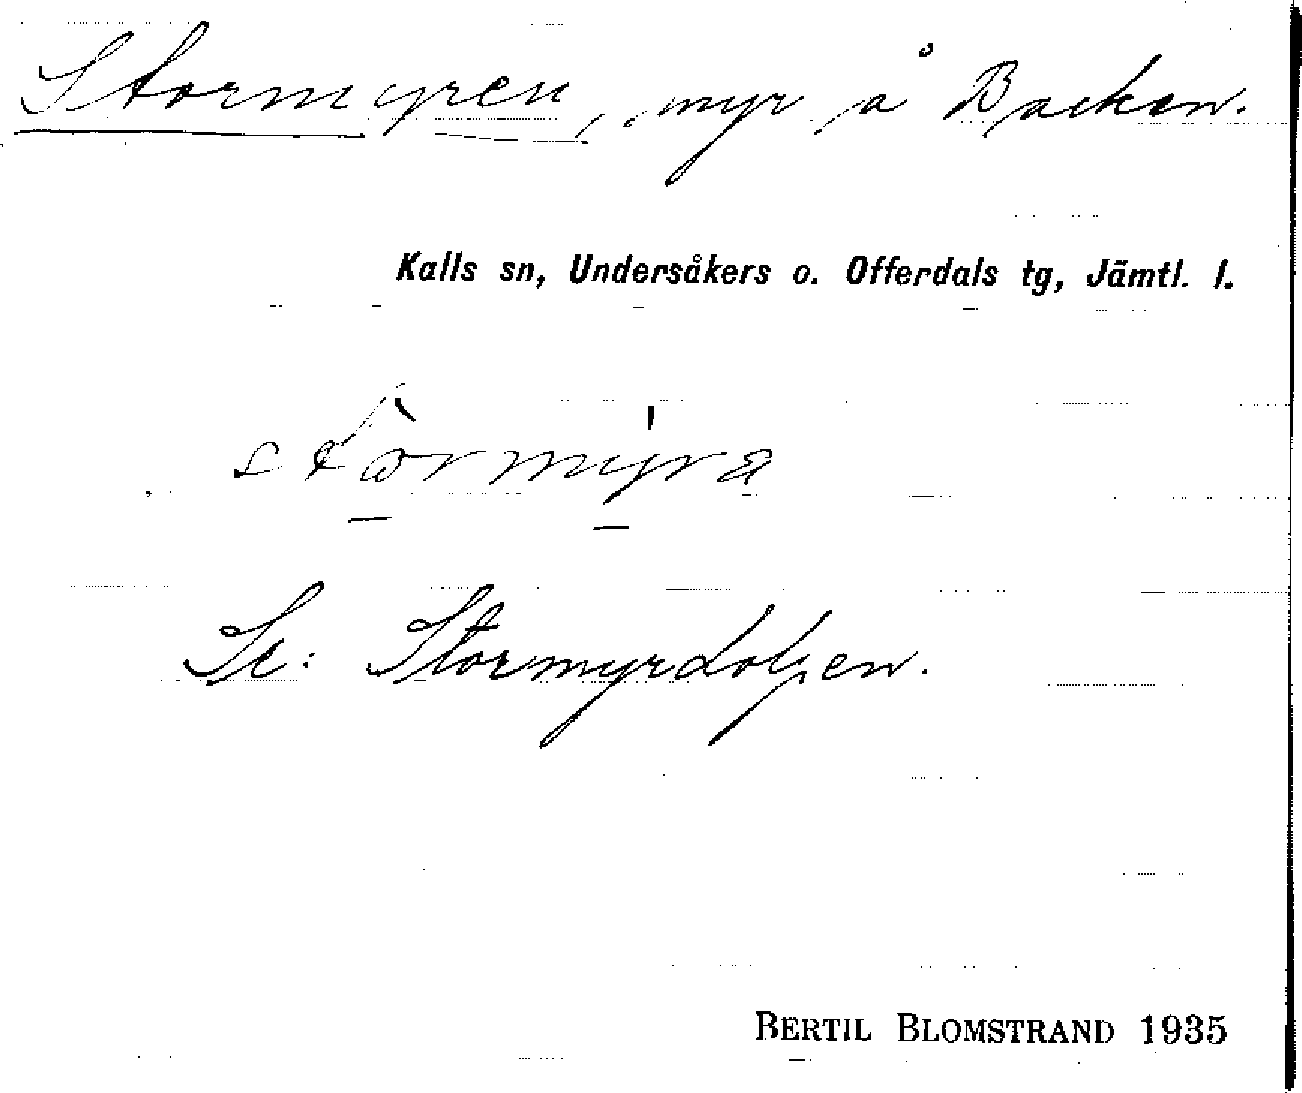 Stormyren, myr å Backen.
Kalls sn, Undersåkers o. Offerdals tg, Jämtl. l.
Se: Stormyrdolpen.
BERTIL BLOMSTRAND 1935